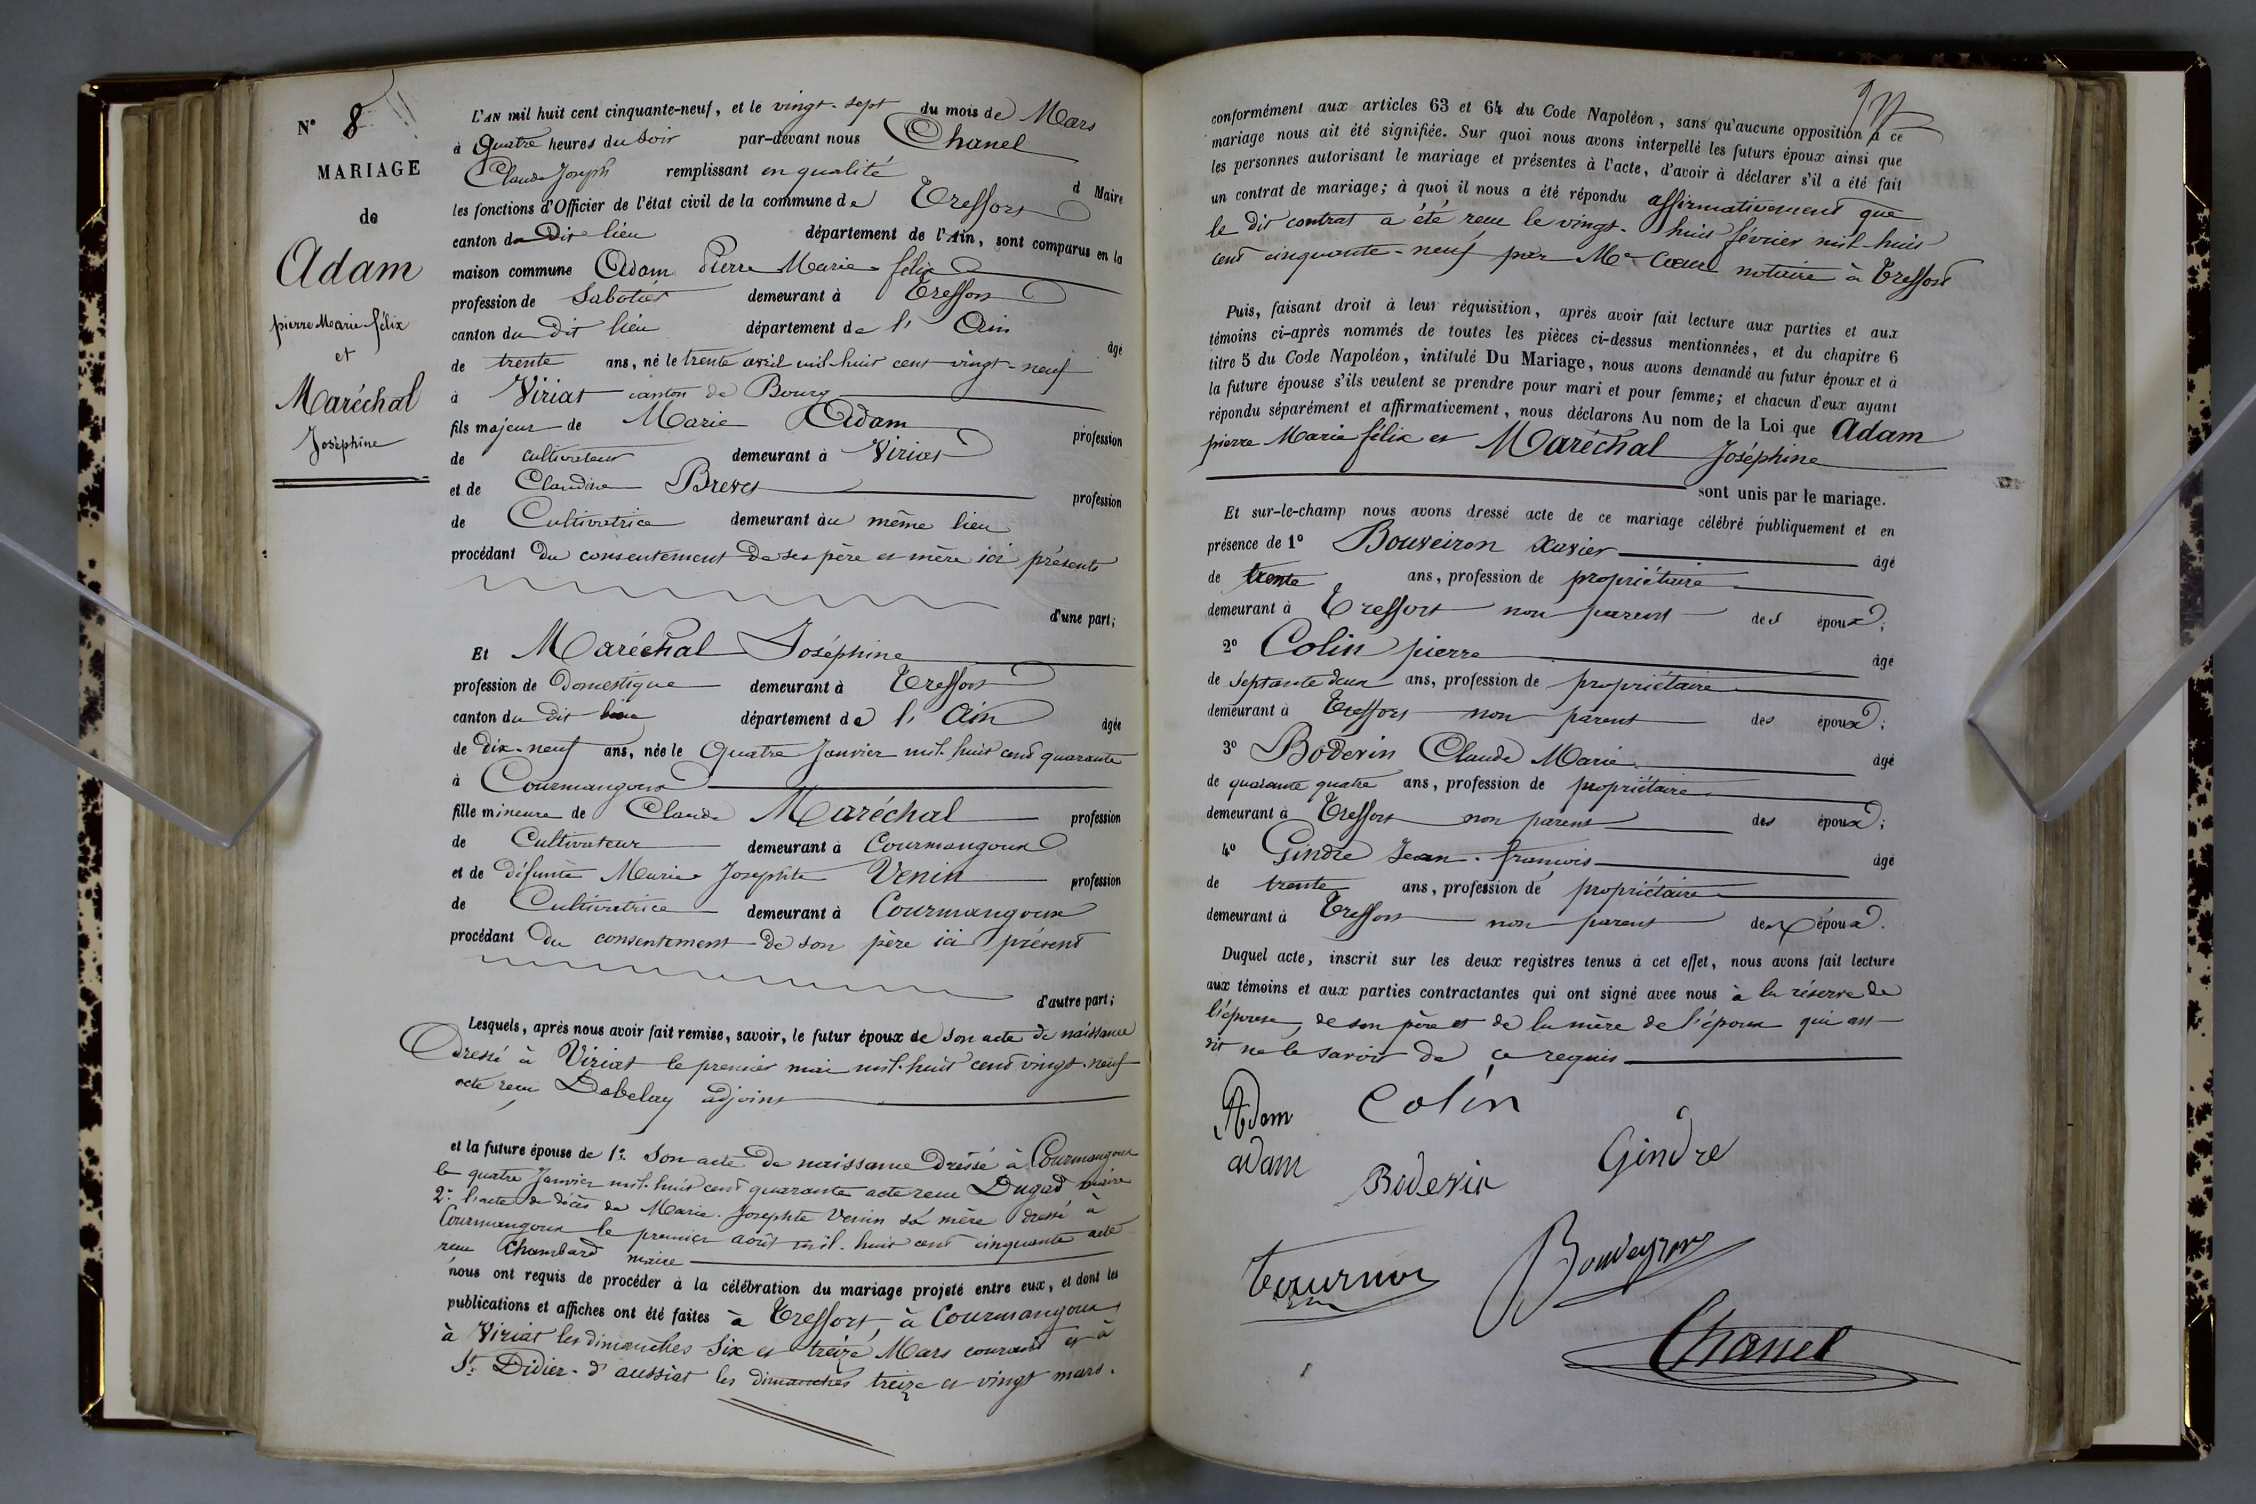 N° 8
MARIAGE
de
Adam
pierre Marie félix
et
Maréchal
Joséphine
L'AN mil huit cent cinquante-neuf, et le vingt-sept du mois de Mars
à Quatre heures du Soir par-devant nous Chanel
Claude Joseph remplissant en qualité d Maire
les fonctions d'Officier de l'état civil de la commune de Treffort
canton du Dit lieu département de l'Ain, sont comparus en la
maison commune Adam Pierre Marie félix
profession de Sabotier demeurant à Treffort
canton du Dit lieu département de l' Ain âgé
de trente ans, né le trente avril mil huit cent vingt-neuf
à Viriat canton de Bourg
fils majeur de Marie Adam profession
de cultivateur demeurant à Viriat
et de Claudine Brevet profession
de Cultivatrice demeurant au même lieu
procédant du consentement de ses père et mère ici présents
d'une part;
Et Maréchal Joséphine
profession de Domestique demeurant à Treffort
canton du Dit lieu département de l' Ain âgée
de Dix-neuf ans, née le Quatre Janvier mil huit cent quarante
à Courmangoux
fille mineure de Claude Maréchal profession
de Cultivateur demeurant à Courmangoux
et de défunte Marie Josephte Venin profession
de Cultivatrice demeurant à Courmangoux
procédant du consentement de son père ici présent
d'autre part;
Lesquels, après nous avoir fait remise, savoir, le futur époux de Son acte de naissance
dressé à Viriat le premier mai mil huit cent vingt-neuf
acte reçu Dobelay adjoint
et la future épouse de 1° Son acte de naissance dressé à Courmangoux
le quatre Janvier mil huit cent quarante acte reçu Dugad maire
2° l'acte de décès de Marie Josephte Venin sa mère dressé à
Courmangoux le premier août mil huit cent cinquante acte
reçu Chambard maire
nous ont requis de procéder à la célébration du mariage projeté entre eux, et dont les
publications et affiches ont été faites à Treffort, à Courmangoux
à Viriat les dimanches Six et treize Mars courant et à
St Didier-d'aussiat les dimanches treize et vingt mars.
conformément aux articles 63 et 64 du Code Napoléon, sans qu'aucune opposition à ce
mariage nous ait été signifiée. Sur quoi nous avons interpellé les futurs époux ainsi que
les personnes autorisant le mariage et présentes à l'acte, d'avoir à déclarer s'il a été fait
un contrat de mariage; à quoi il nous a été répondu affirmativement que
le dit contrat a été reçu le vingt-huit février mil huit
cent cinquante-neuf par Me Cœur notaire à Treffort
Puis, faisant droit à leur réquisition, après avoir fait lecture aux parties et aux
témoins ci-après nommés de toutes les pièces ci-dessus mentionnées, et du chapitre 6
titre 5 du Code Napoléon, intitulé Du Mariage, nous avons demandé au futur époux et à
la future épouse s'ils veulent se prendre pour mari et pour femme; et chacun d'eux ayant
répondu séparément et affirmativement, nous déclarons Au nom de la Loi que Adam
pierre Marie félix et Maréchal Joséphine
sont unis par le mariage.
Et sur-le-champ nous avons dressé acte de ce mariage célébré publiquement et en
présence de 1° Bouveiron Xavier âgé
de trente ans, profession de propriétaire
demeurant à Treffort non parent des époux;
2° Colin pierre âgé
de septante deux ans, profession de propriétaire
demeurant à Treffort non parent des époux;
3° Bodevin Claude Marie âgé
de quarante quatre ans, profession de propriétaire
demeurant à Treffort non parent des époux;
4° Gindre Jean-françois âgé
de trente ans, profession de propriétaire
demeurant à Treffort non parent des époux.
Duquel acte, inscrit sur les deux registres tenus à cet effet, nous avons fait lecture
aux témoins et aux parties contractantes qui ont signé avec nous à la réserve de
l'épouse, de son père et de la mère de l'époux qui ont
dit ne le savoir de ce requis
Adam Colin
adam Bodevin Gindre
Bouveyron
Chanel